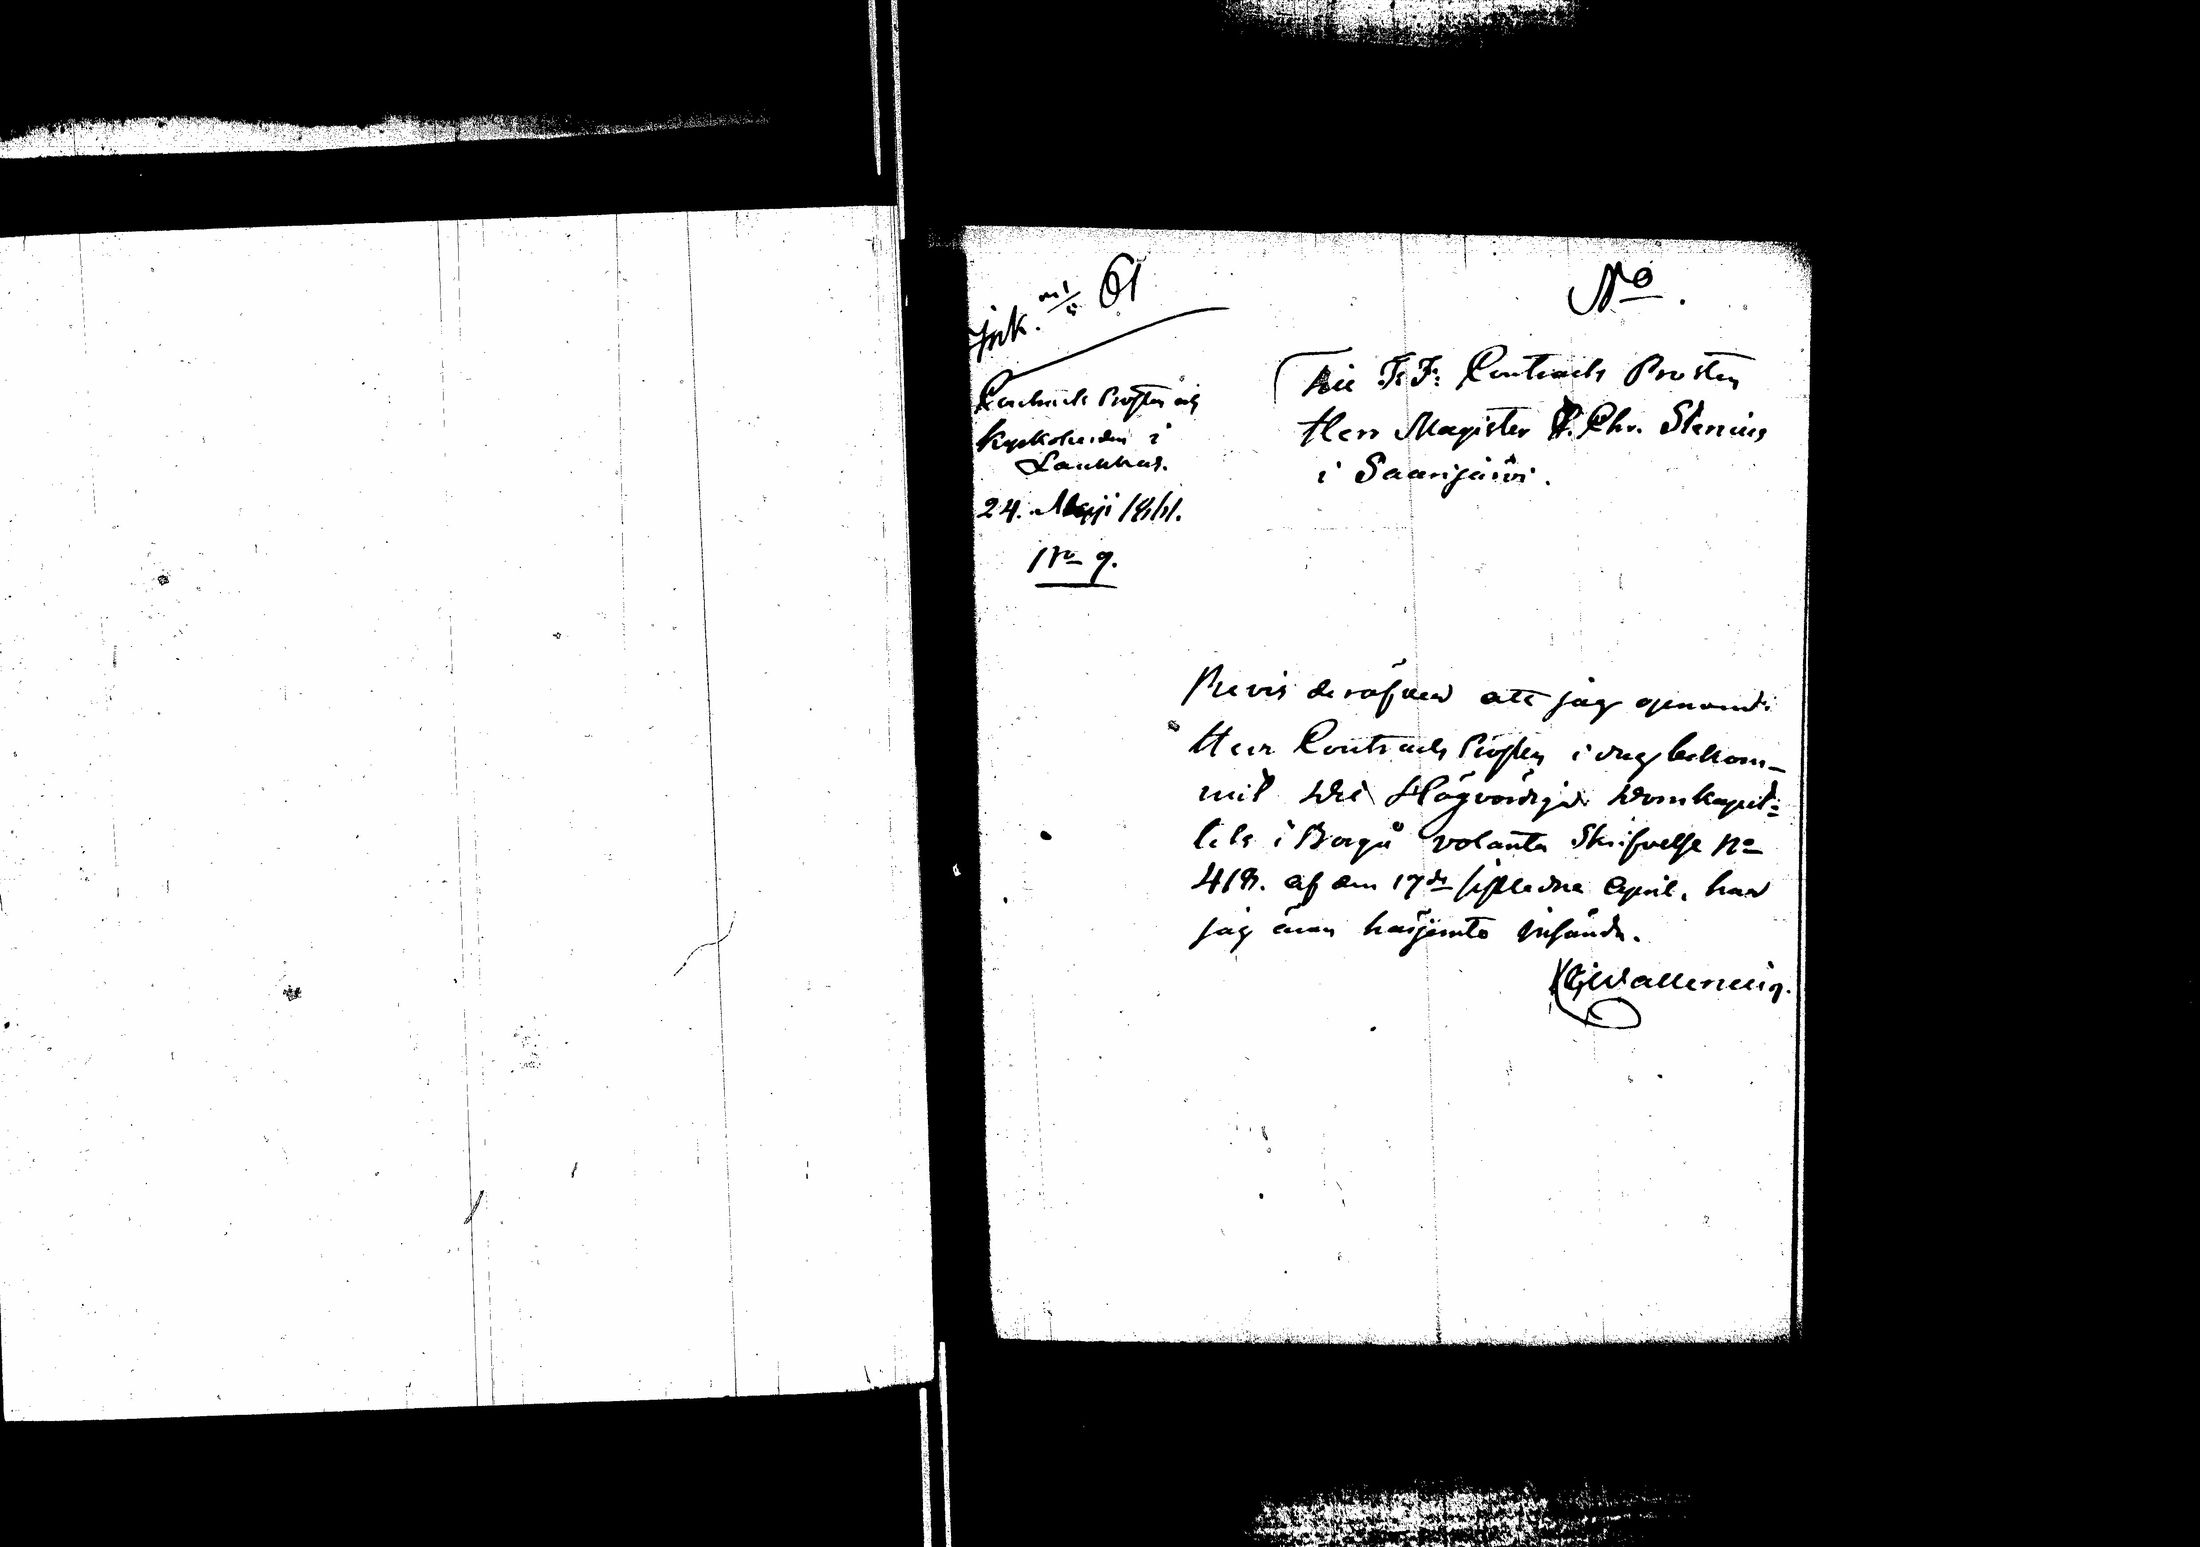 Ink. 61
No.
Contracts Prosten och
Kyrkoherden i
Laukkas.
24. Maji 1861.
No 9.
Till T. F. Contracts Prosten
Herr Magister Chr. Stenius
i Saarijärvi.
Bevis deröfver att jag genom
Herr Contracts Prosten i dag bekom-
mit det Högvördiga Domkapit-
lets i Borgå volanta Skrifvelse No
418. af den 17de sistledne April, har
jag äran härjemte insända.
Wallenius.